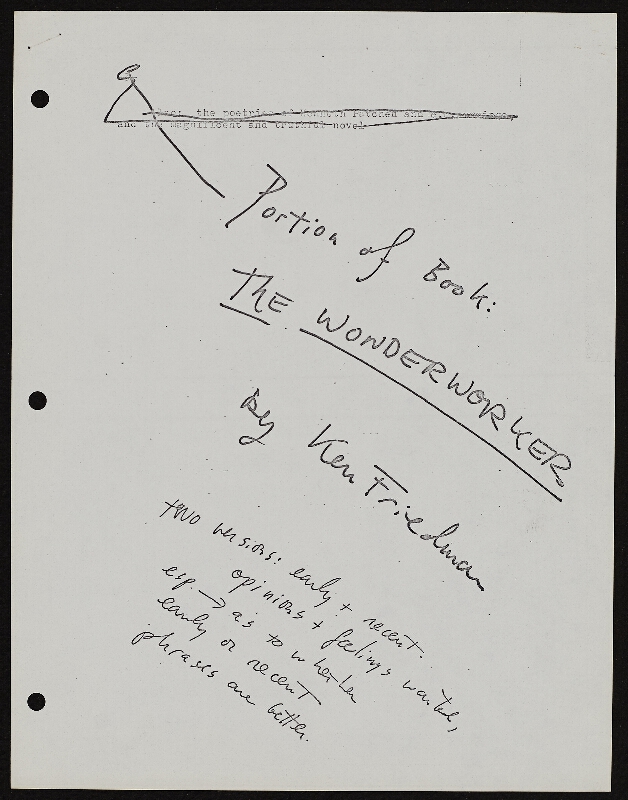 the poetries of Kenneth Patched and
and the magnificent and truthful novel
Portion of Book:
THE WONDERWORKER
by Ken Friedman
two versions: early + recent.
opinions + feelings wanted,
esp. → as to whether
early or recent
phrases are better.